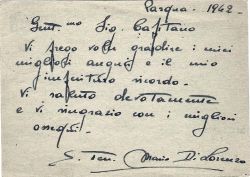 Pasqua - 1942
Gent.mo Sig. Capitano
Vi prego voler gradire i miei
migliori auguri e il mio
ricordo.
Vi saluto devotamente
e vi ringrazio con i migliori
ossequi.
S. Ten. Mario Di Lorenzo